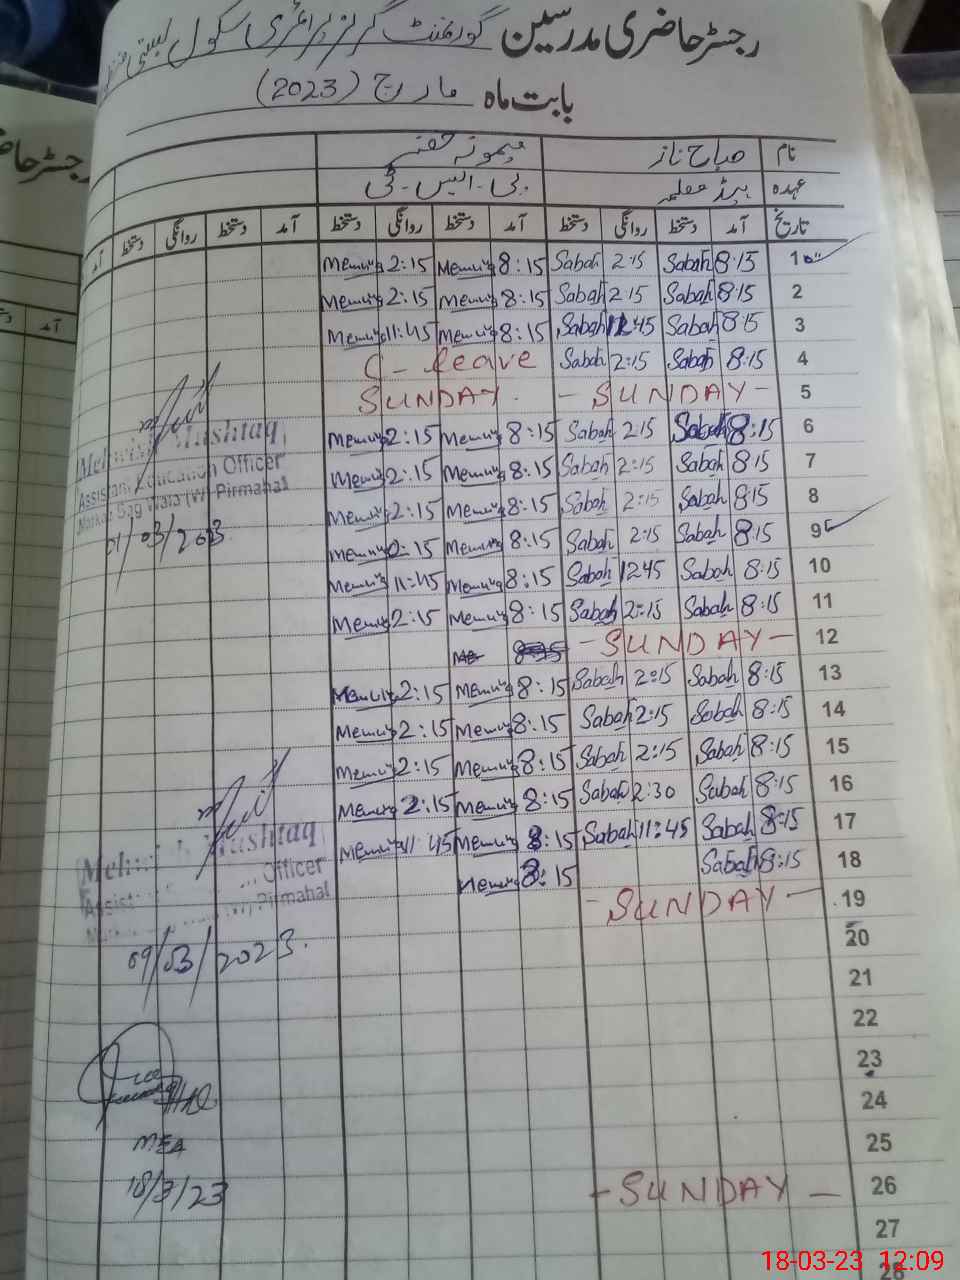 رجسٹر حاضری مدرسین گورنمنٹ گرلز پرائمری سکول بستی
بابت ماہ مارچ (2023)
نام صباح ناز میمونہ
عہدہ ہیڈ معلمہ پی-ایس-ٹی
تاریخ آمد دستخط روانگی دستخط آمد دستخط روانگی دستخط آمد دستخط روانگی دستخط آمد
1 8:15 Sabah 2:15 Sabah 8:15 Memuna 2:15 Memuna
2 8:15 Sabah 2:15 Sabah 8:15 Memuna 2:15 Memuna
3 8:15 Sabah 12:45 Sabah 8:15 Memuna 11:45 Memuna
4 8:15 Sabah 2:15 Sabah C-leave
5 - SUNDAY - SUNDAY
6 8:15 Sabah 2:15 Sabah 8:15 Memuna 2:15 Memuna
7 8:15 Sabah 2:15 Sabah 8:15 Memuna 2:15 Memuna
8 8:15 Sabah 2:15 Sabah 8:15 Memuna 2:15 Memuna
9 8:15 Sabah 2:15 Sabah 8:15 Memuna :15 Memuna
10 8:15 Sabah 12:45 Sabah 8:15 Memuna 11:45 Memuna
11 8:15 Sabah 2:15 Sabah 8:15 Memuna 2:15 Memuna
12 - SUNDAY -
13 8:15 Sabah 2:15 Sabah 8:15 Memuna 2:15 Memuna
14 8:15 Sabah 2:15 Sabah 8:15 Memuna 2:15 Memuna
15 8:15 Sabah 2:15 Sabah 8:15 Memuna 2:15 Memuna
16 8:15 Sabah 2:30 Sabah 8:15 Memuna 2:15 Memuna
17 8:15 Sabah 11:45 Sabah 8:15 Memuna 11:45 Memuna
18 8:15 Sabah 8:15 Memuna
19 - SUNDAY -
20
21
22
23
24
25
26 - SUNDAY -
27
28
Mehwish Mushtaq
Assistant Education Officer
Markaz Bag Wala (W) Pirmahal
01/03/2023
Mehwish Mushtaq
Assistant Officer
(W) Pirmahal
09/03/2023
MEA
18/3/23
رجسٹر حا
آمد
18-03-23 12:09